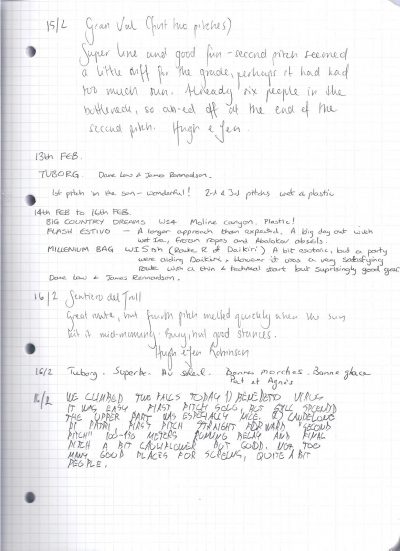 15/2 Gran Val (first two pitches)
Super line and good fun - second pitch seemed
a little stiff for the grade, perhaps it had had
too much sun. Already six people in the
bottleneck, so ab-ed off at the end of the
second pitch. Hugh & Jen.
13th FEB.
TUBORG. Dave Law & James Rennardson.
1st pitch in the sun - wonderful! 2nd & 3rd pitchs wet & plastic
14th FEB to 16th FEB.
BIG COUNTRY DREAMS WS4 Moline canyon. Plastic!
FLASH ESTIVO - A longer approach than expected. A big day out with
wet ice, frozen ropes and Abalakov abseils.
MILLENIUM BAG WI5ish (Route R of Daikiri) A bit esoteric, but a party
were aiding Daikiri. However it was a very satisfying
route with a thin & technical start but surprisingly good gear
Dave Law & James Rennardson.
16/2 Sentiero del Troll
Great route, but fourth pitch melted quickly when the sun
hit it mid-morning. Busy, but good stances.
Hugh & Jen Robinson
16/2 Tuborg. Superbe. Au soleil. Bonnes marches. Bonne glace
Pat et Agnès
16/2 WE CLIMBED TWO FALLS TODAY 1) BENEDETTO VIRUS
IT WAS EASY FIRST PITCH SOLO, BUT STILL SPLENDID
THE UPPER PART WAS ESPECIALLY NICE. 2) CANDELONE
DI PATRI FIRST PITCH STRAIGHT FORWARD "SECOND
PITCH" 100-130 METERS RUNNING BELAY AND FINAL
PITCH A BIT CAULIFLOWER BUT GOOD. NOT TOO
MANY GOOD PLACES FOR SCREWS, QUITE A BIT
PEOPLE.